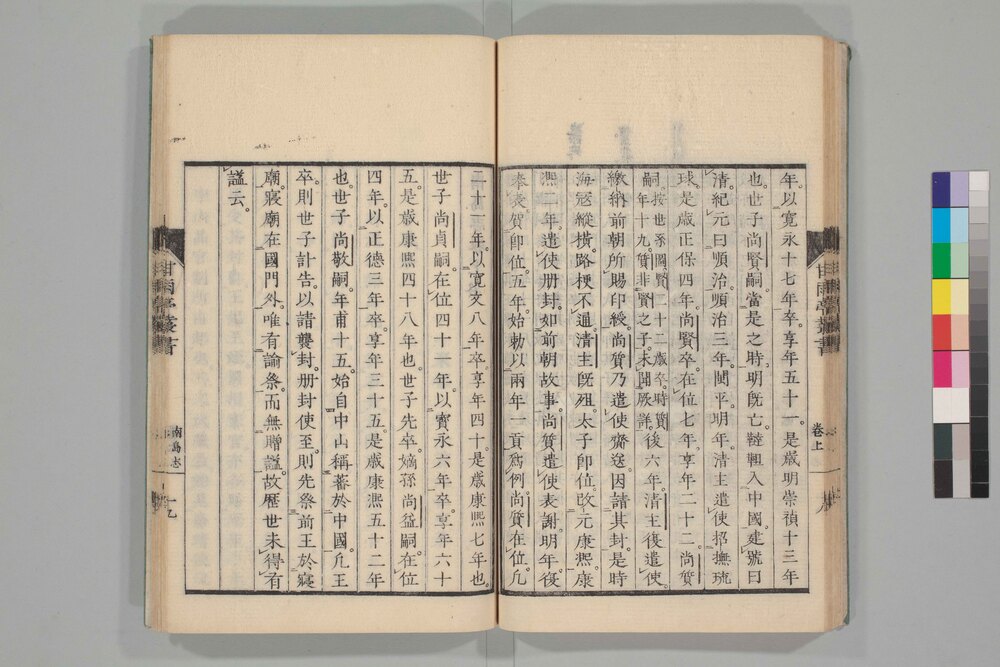 年。以寛永十七年卒。享年五十一。是歳明崇禎十三年
也。世子尚賢嗣。當是之時。明既亡。韃靼入中國。建號曰
清。紀元曰順治。順治三年閩平。明年清主遣使招撫琉
球。是歳正保四年。尚賢卒。在位七年。享年二十二。尚質
嗣。按世系圖。賢二十二歳卒。時質年十九。質非賢之子。未聞厥詳。後六年。清主復遣使。
繳納前朝所賜印綬。尚質乃遣使齎送。因請其封。是時
海寇縱横。路梗不通。清主既殂。太子即位。改元康熙。康
熙二年。遣使册封如前朝故事。尚質遣使表謝。明年復
奉表賀即位。五年。始勅以兩年一貢爲例。尚質在位。凡
二十一年。以寛文八年卒。享年四十。是歳康熙七年也。
世子尚貞嗣。在位四十一年。以寳永六年卒。享年六十
五。是歳康熙四十八年也。世子先卒。嫡孫尚益嗣。在位
四年。以正德三年卒。享年三十五。是歳康熙五十二年
也。世子尚敬嗣。年甫十五。始自中山稱蕃於中國。凡王
卒。則世子計告。以請襲封。册封使至。則先祭前王於寢
廟。寢廟在國門外。唯有諭祭。而無贈謚。故歴世未得有
謚云。
甘雨亭叢書
卷上
甘雨亭叢書
南島志
十九